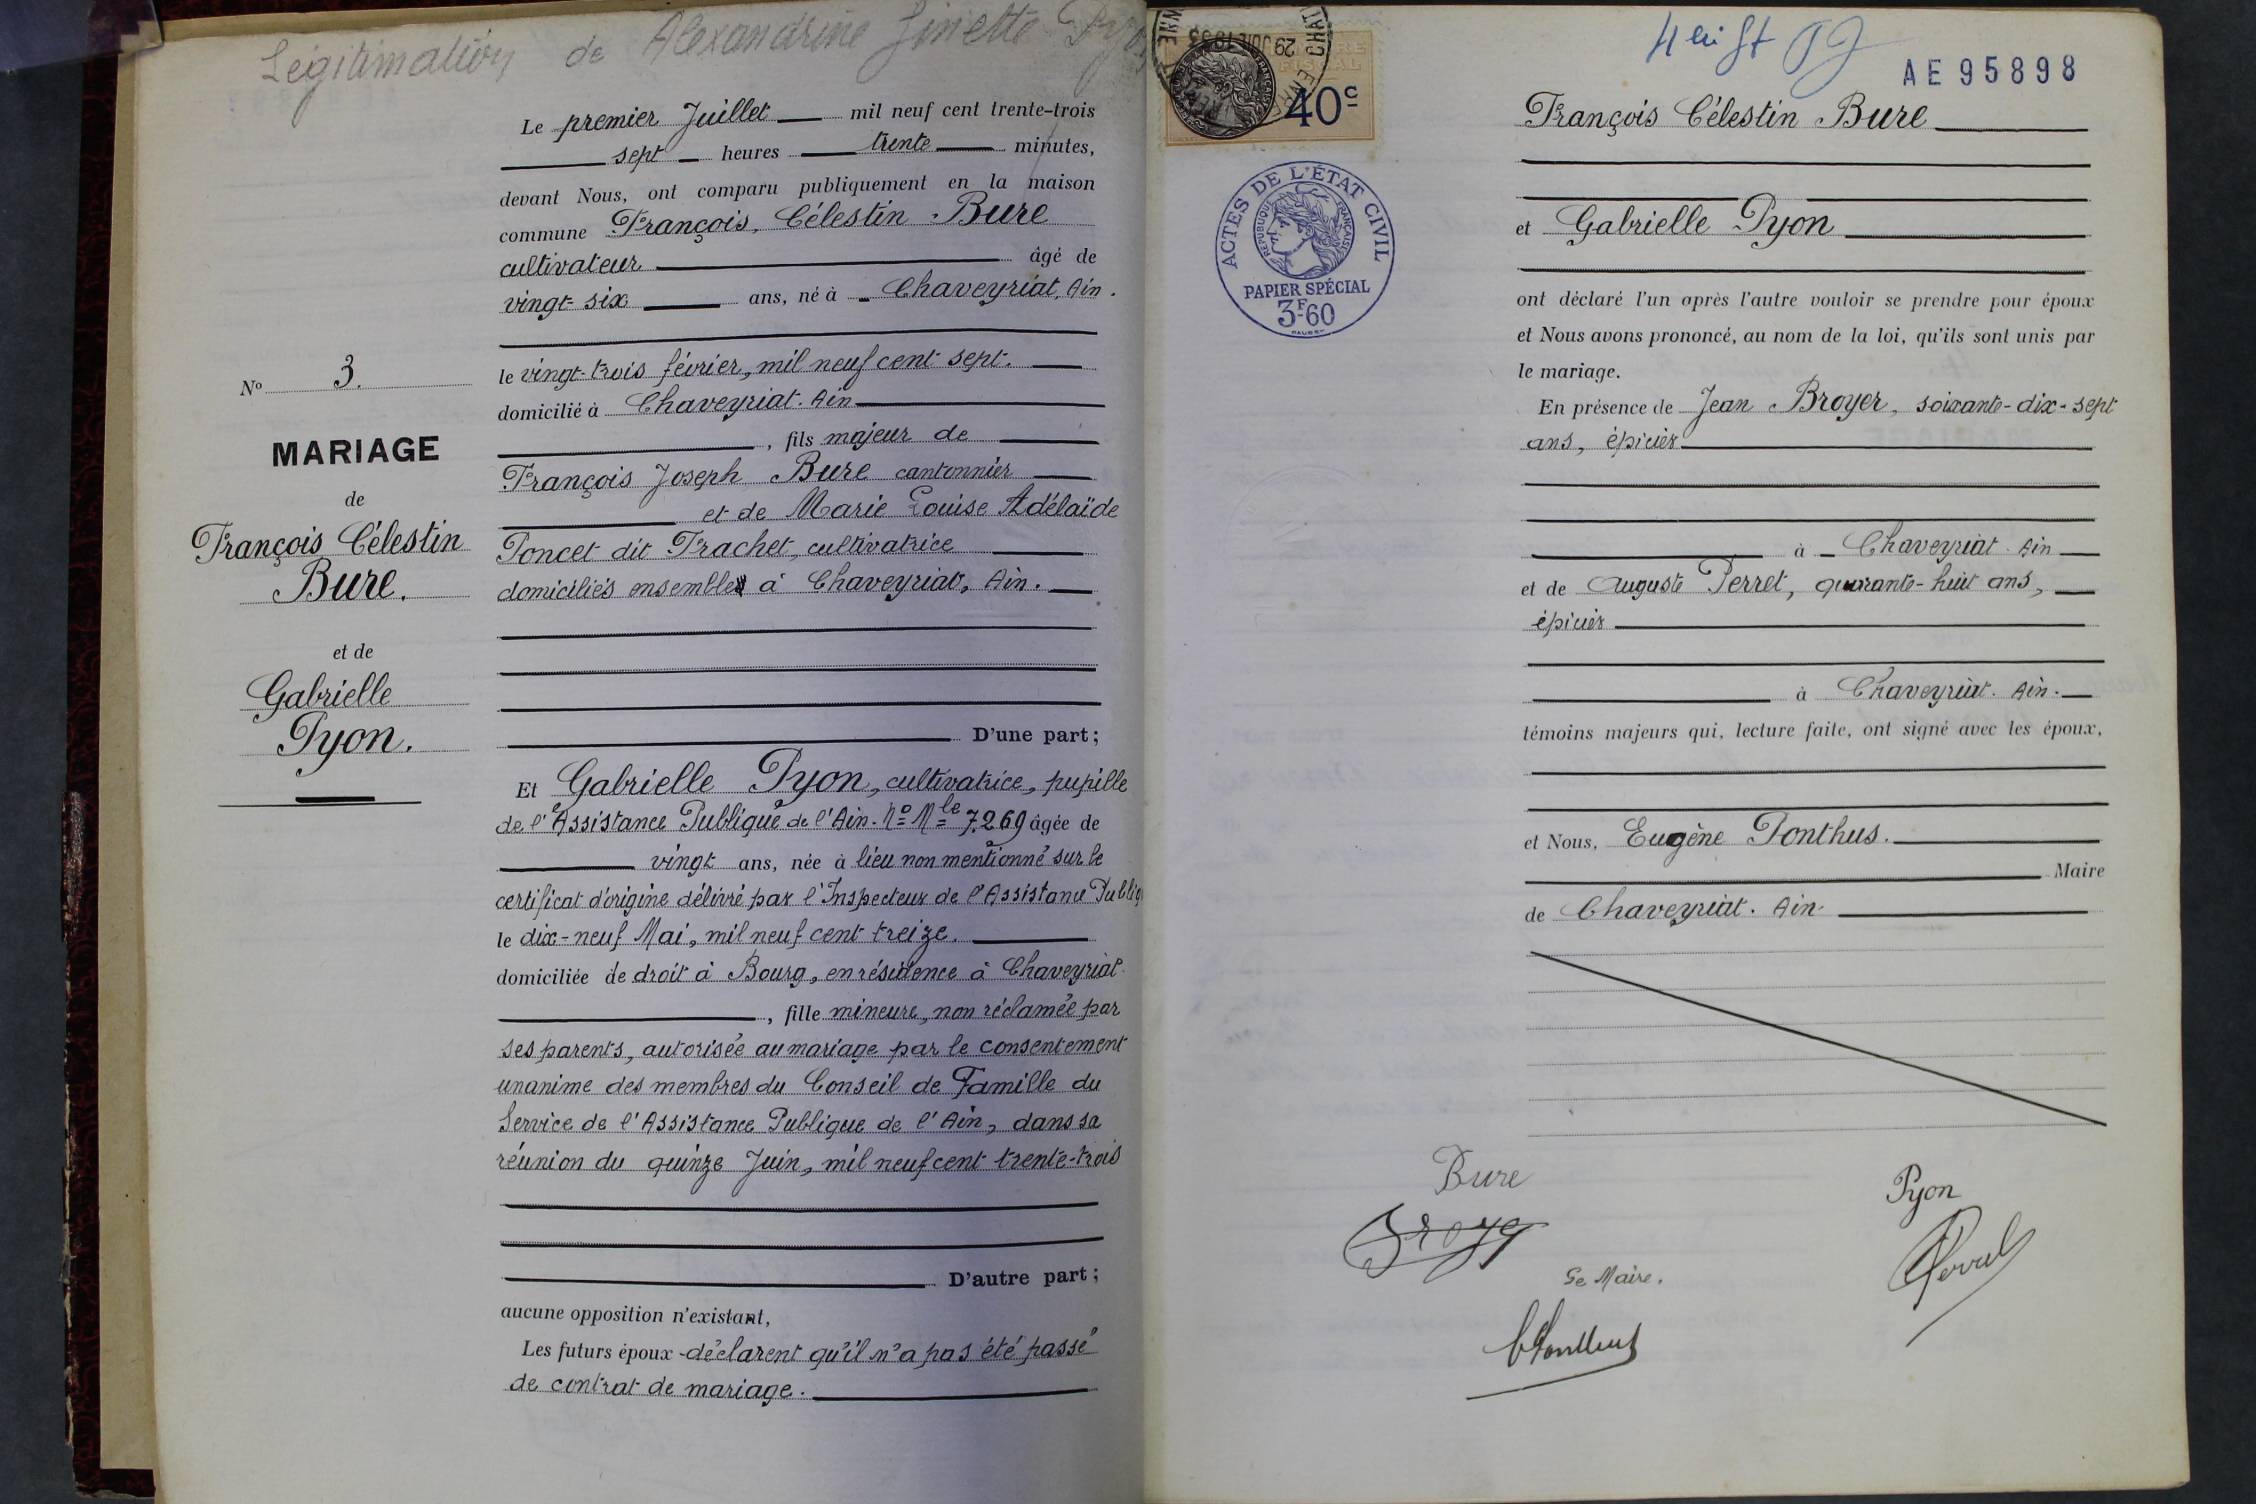 Légitimation de Alexandrine Ginette Pyon
Le premier Juillet mil neuf cent trente-trois
sept heures trente minutes,
devant Nous, ont comparu publiquement en la maison
commune François, Célestin Bure
cultivateur âgé de
vingt-six ans, né à Chaveyriat, Ain.
le vingt-trois février, mil neuf cent sept.
domicilié à Chaveyriat. Ain
, fils majeur de
François Joseph Bure cantonnier
et de Marie Louise Adélaïde
Poncet dit Trachet, cultivatrice
domiciliés ensemble à Chaveyriat, Ain.
D'une part;
Et Gabrielle Pyon, cultivatrice, pupille
de l'Assistance Publique de l'Ain. No Mle 7.269 âgée de
vingt ans, née à lieu non mentionné sur le
certificat d'origine délivré par l'Inspecteur de l'Assistance Publiq
le dix-neuf Mai, mil neuf cent treize.
domiciliée de droit à Bourg, en résidence à Chaveyriat.
, fille mineure, non réclamée par
ses parents, autorisée au mariage par le consentement
unanime des membres du Conseil de Famille du
Service de l'Assistance Publique de l'Ain, dans sa
réunion du quinze Juin, mil neuf cent trente-trois
D'autre part;
aucune opposition n'existant,
Les futurs époux déclarent qu'il n'a pas été passé
de contrat de mariage.
No 3.
MARIAGE
de
François Célestin
Bure.
et de
Gabrielle
Pyon.
40c
29 JUIL 1933
ACTES DE L'ÉTAT CIVIL
RÉPUBLIQUE FRANÇAISE
PAPIER SPÉCIAL
3F60
AE95898
François Célestin Bure
et Gabrielle Pyon
ont déclaré l'un après l'autre vouloir se prendre pour époux
et Nous avons prononcé, au nom de la loi, qu'ils sont unis par
le mariage.
En présence de Jean Broyer, soixante-dix-sept
ans, épicier
à Chaveyriat. Ain
et de Auguste Perret, quarante-huit ans,
épicier
à Chaveyriat. Ain.
témoins majeurs qui, lecture faite, ont signé avec les époux,
et Nous, Eugène Ponthus.
Maire
de Chaveyriat. Ain.
Bure
Pyon
Broye
Perret
Le Maire.
EPonthus